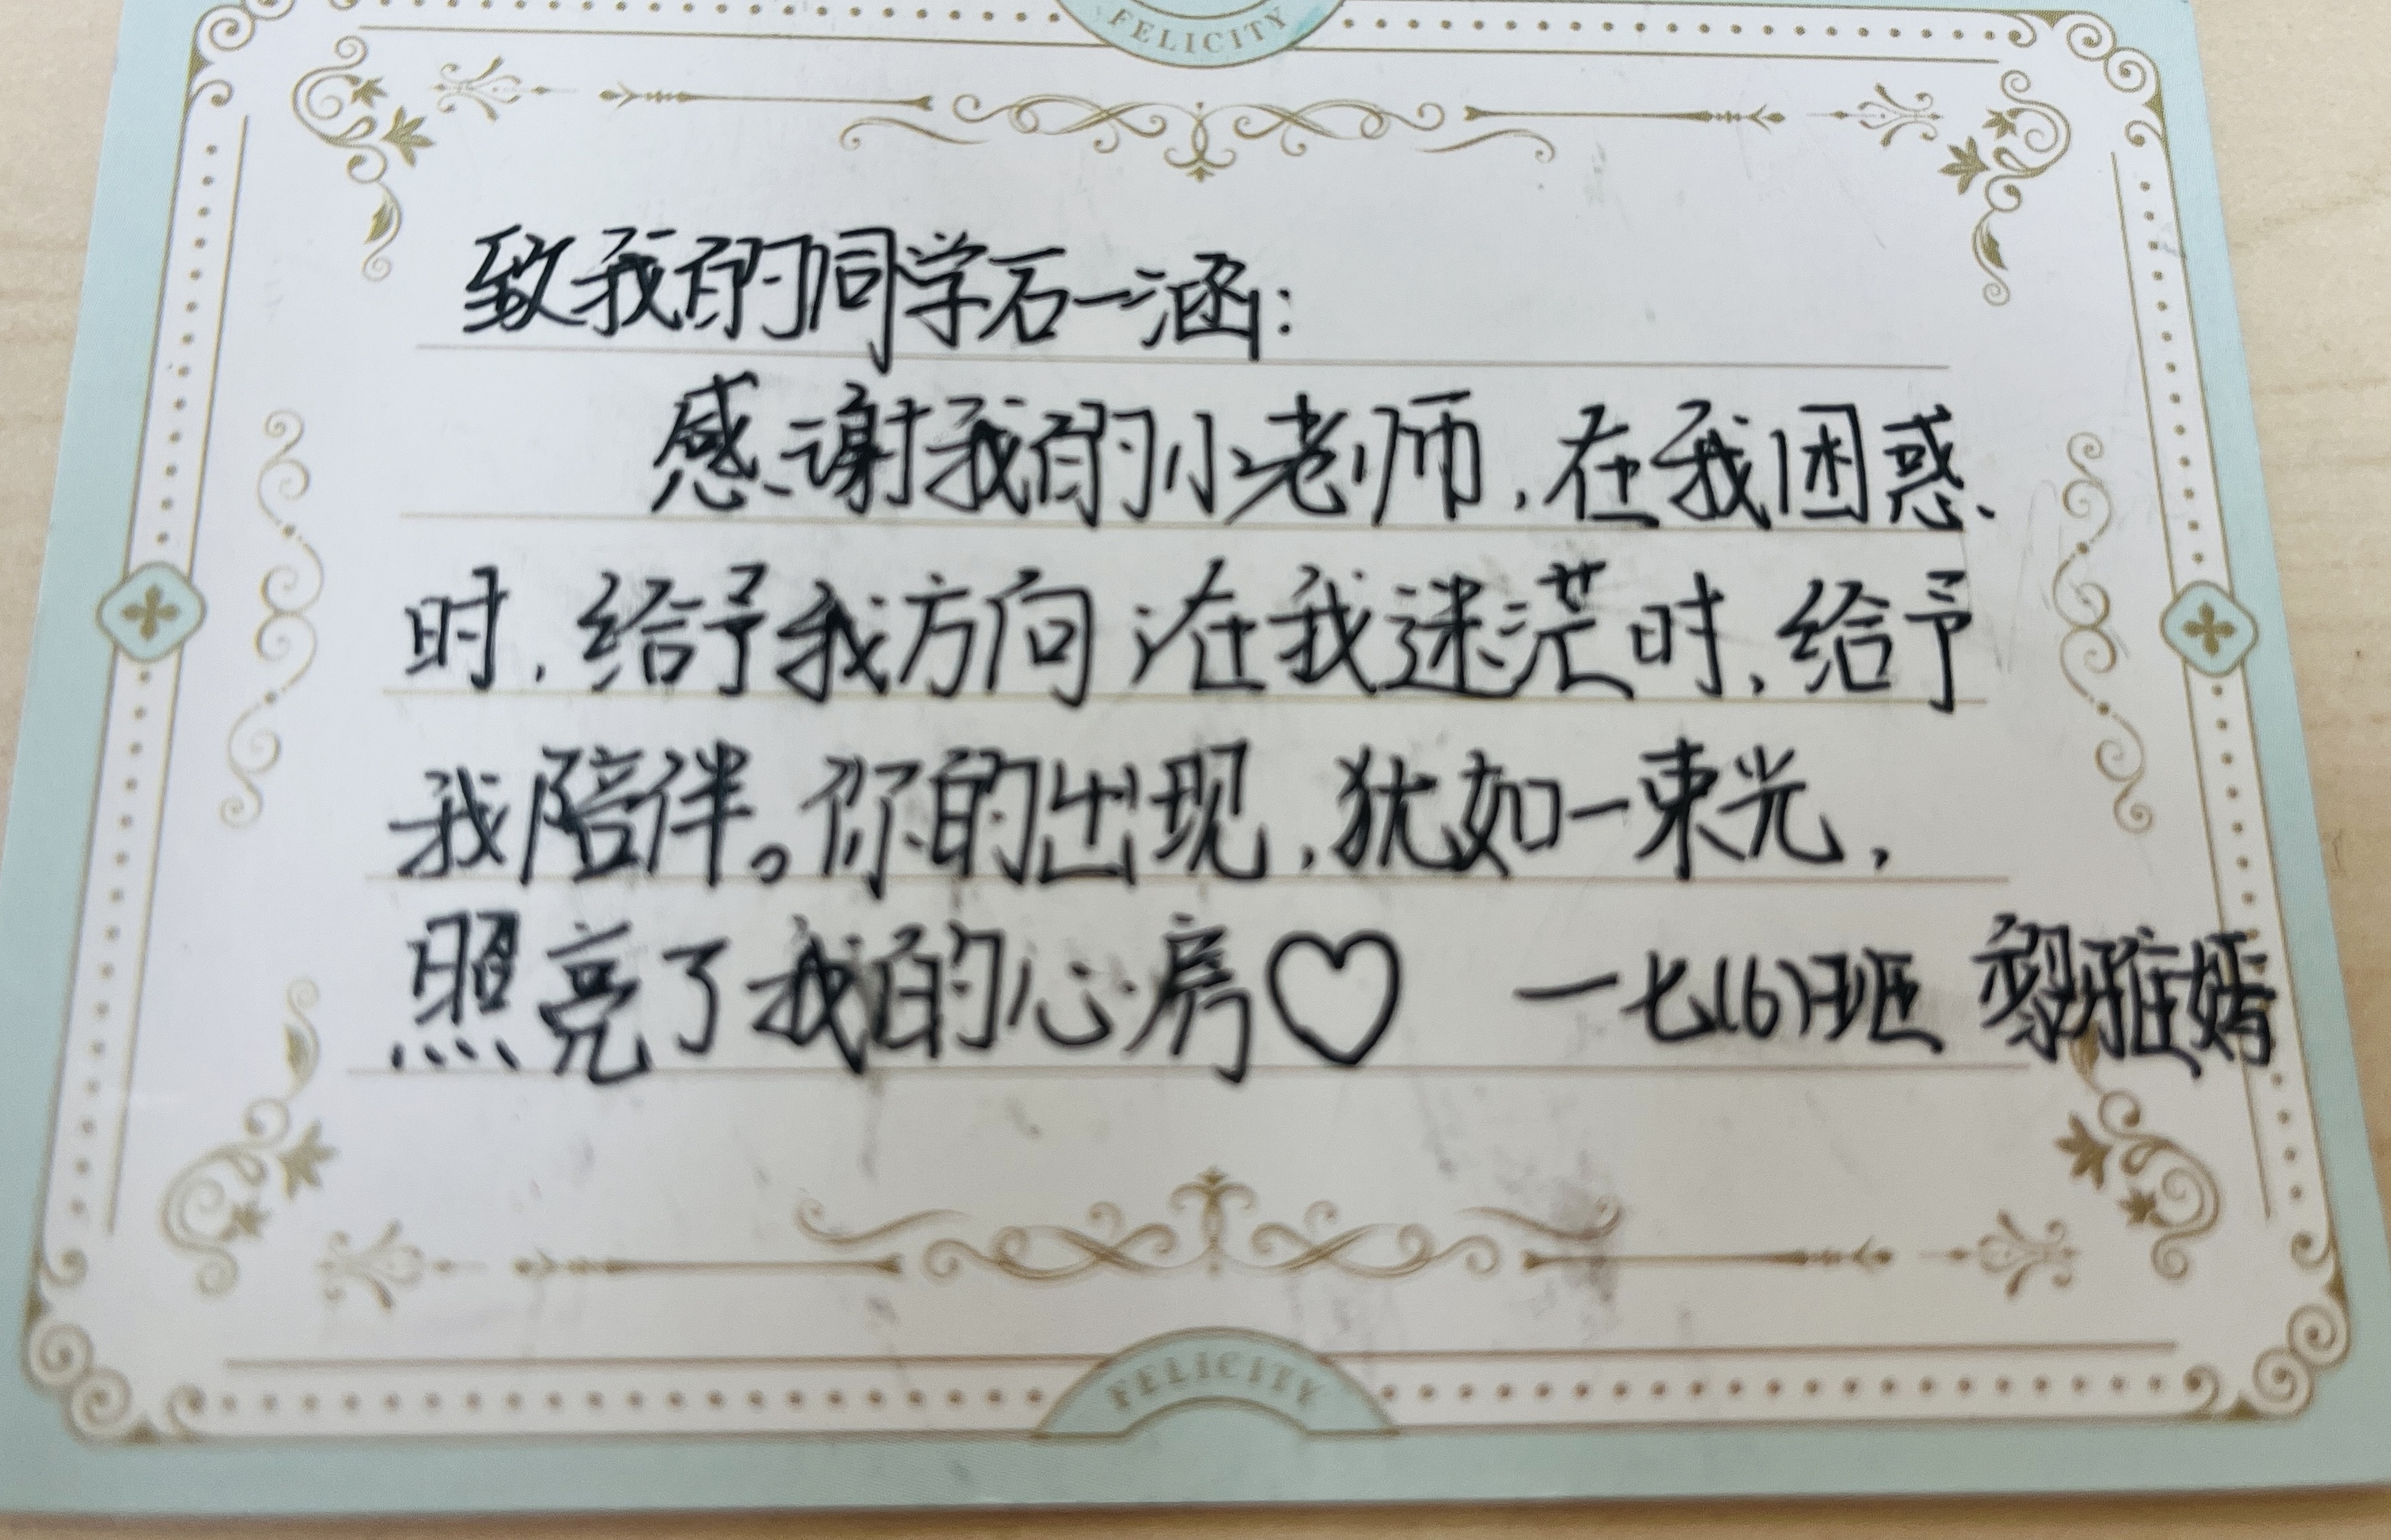 FELICITY
致我的同学石一涵:
感谢我的小老师,在我困惑
时,给予我方向;在我迷茫时,给予
我陪伴。你的出现,犹如一束光,
照亮了我的心房♡ 一七(6)班 黎雅嫣
FELICITY